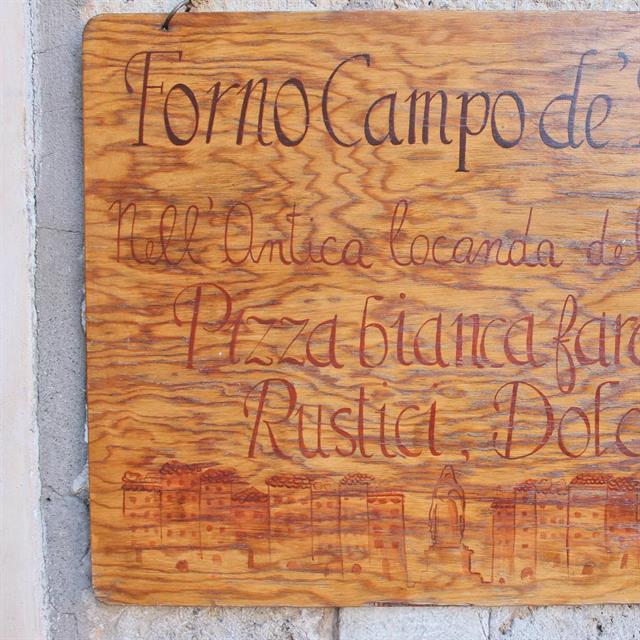 Forno Campo de'
Nell'Antica locanda del
Pizza bianca far
Rustici, Dolc